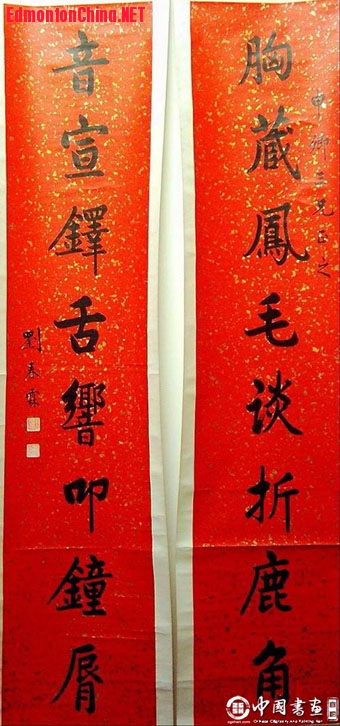 EdmontonChina.NET
申卿二兄正之
胸藏鳳毛谈折鹿角
音宣鐸舌響叩鐘脣
劉春霖
中国書画